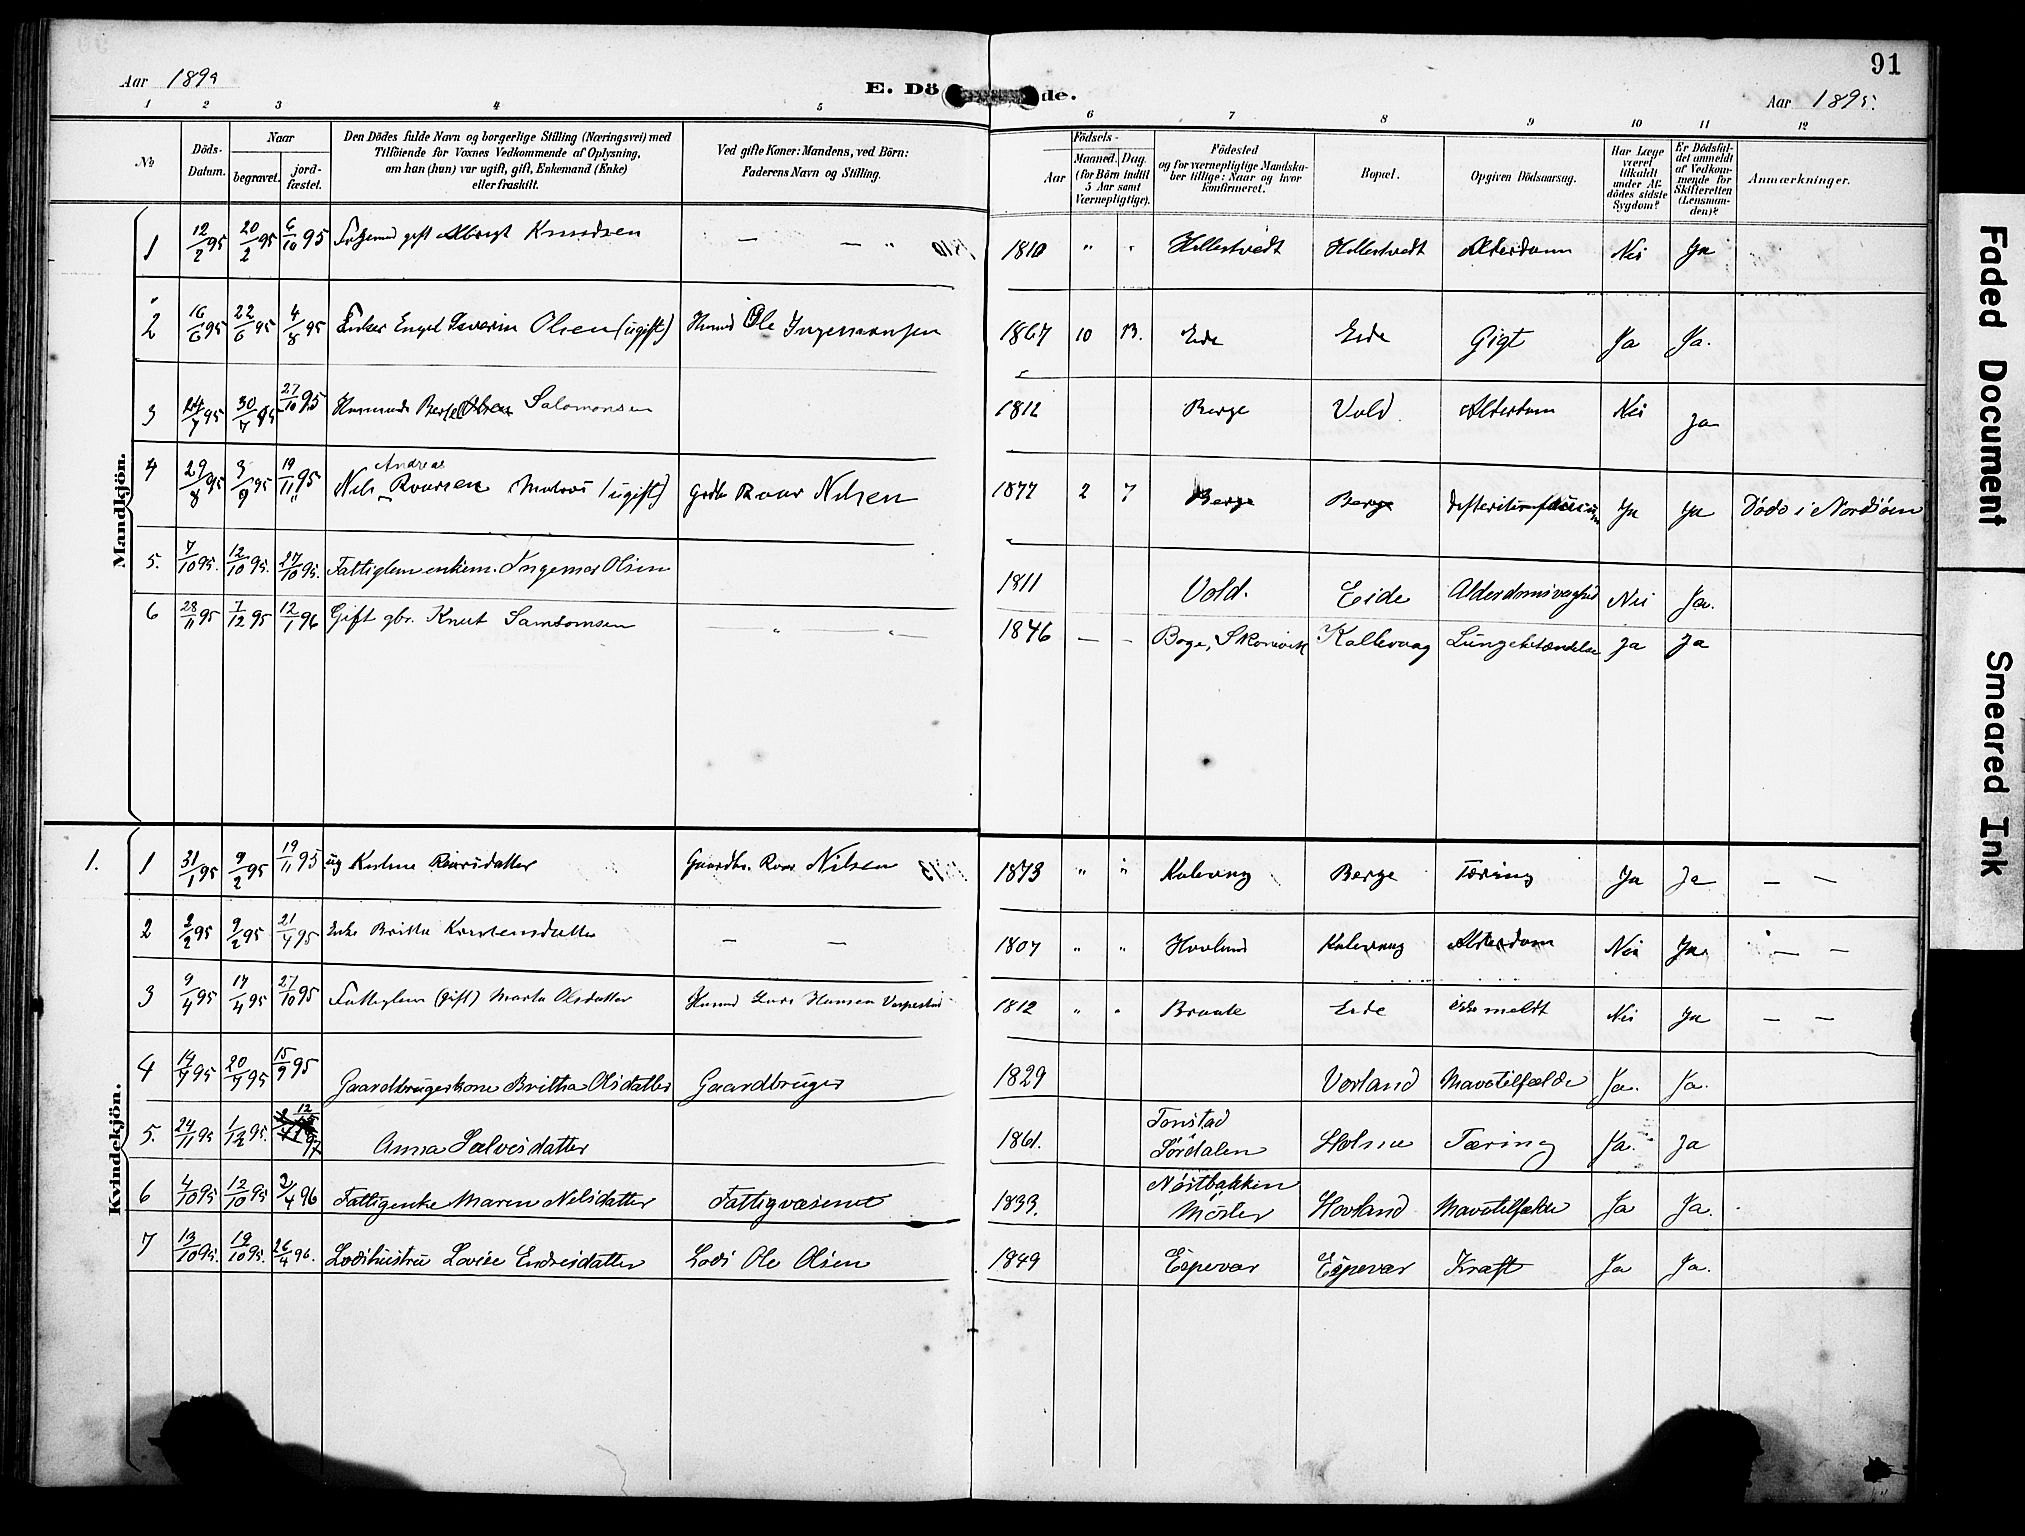 91
Aar 1895
E. Dö de.
Aar 1895.
1 2 3 4 5 6 7 8 9 10 11 12
No
Döds-Datum.
Naar
begravet.
jord-fæstet.
Den Dödes fulde Navn og borgerlige Stilling (Næringsvei) med
Tilföiende for Voxnes Vedkommende af Oplysning,
om han (hun) var ugift, gift, Enkemand (Enke)
eller fraskilt.
Ved gifte Koner: Mandens, ved Börn:
Faderens Navn og Stilling.
Födsels-
Aar
Maaned. Dag.
(for Börn indtil
5 Aar samt
Værnepligtige).
Födested
og for værnepligtige Mandska-
ber tillige: Naar og hvor
konfirmeret.
Bopæl.
Opgiven Dödsaarsag.
Har Læge
været
tilkaldt
under Af-
dödes sidste
Sygdom?
Er Dödsfal-
det anmeldt
af Vedkom-
mende for
Skifteretten
(Lensman-
den)?
Anmærkninger.
Mandkjön.
1 12/2 95 20/2 95 6/10 95 gift Albregt Knudsen — — " 1810 " " Hollestvedt Hollestvedt Alderdom Nei Ja
2 16/6 95 22/6 95 4/8 95 Fisker Engel Severin Olsen (ugift) Husmd Ole Ingemansen 1867 10 13. Eide Eide Gigt Ja Ja.
3 24/7 95 30/7 95 27/10 95 Husmand Berge Olsen Salomonsen 1812 Berge Vold. Alderdom Nei Ja
4 29/8 95 3/9 95 19/11 95 Nils Andreas Roarsen Matros (ugift) Grdbr Roar Nilsen 1877 2 7 Berge Berge Ja Ja Döde i Nordsöen
5. 7/10 95. 12/10 95. 27/10 95. Fattiglem enkem. Ingemar Olsen 1811 Vold. Eide Alderdomsvaghed Nei Ja.
6 28/11 95 7/12 95 12/1 96 Gift gbr. Knut Samsonsen — " " — 1846 — — Boge, Skonevik Kallevaag Lungebetændelse Ja Ja
Kvindekjön.
1. 1 31/1 95 9/2 95 19/11 95 ug Roarsdatter Gaardbr. Roar Nilsen 1873 " " Kalevaag Berge Tæring Ja Ja — —
2 2/2 95 9/2 95 21/4 95 Enke Britta Karstensdatter — — 1807 " " Hovland Kalevaag Alderdom Nei Ja — —
3 9/4 95 17/4 95 27/10 95 Fattiglem (gift) Marta Olsdatter Husmd Lars Hansen 1812 " " Braate Eide ikke meldt Nei Ja — —
4 14/7 95 20/7 95 15/9 95 Gaardbrugerkone Britha Olsdatter Gaardbruger 1829 Vorland Mavetilfælde Ja. Ja.
5. 24/11 95 1/12 95. Anna Salvesdatter 1861. Tonstad Sördalen Holme Tæring Ja. Ja
6 4/10 95 12/10 95 2/4 96 Fattigenke Maren Nelsdatter Fattigvæsenet 1833. Nöstbakken Möster Hovland Mavetilfælde Ja Ja.
7 13/10 95. 19/10 95. 26/4 96. Lodshustru Lovise Endresdatter Lods Ole Olsen 1849 Espevær Espevær Kræft Ja Ja.
Faded Document
Smeared Ink